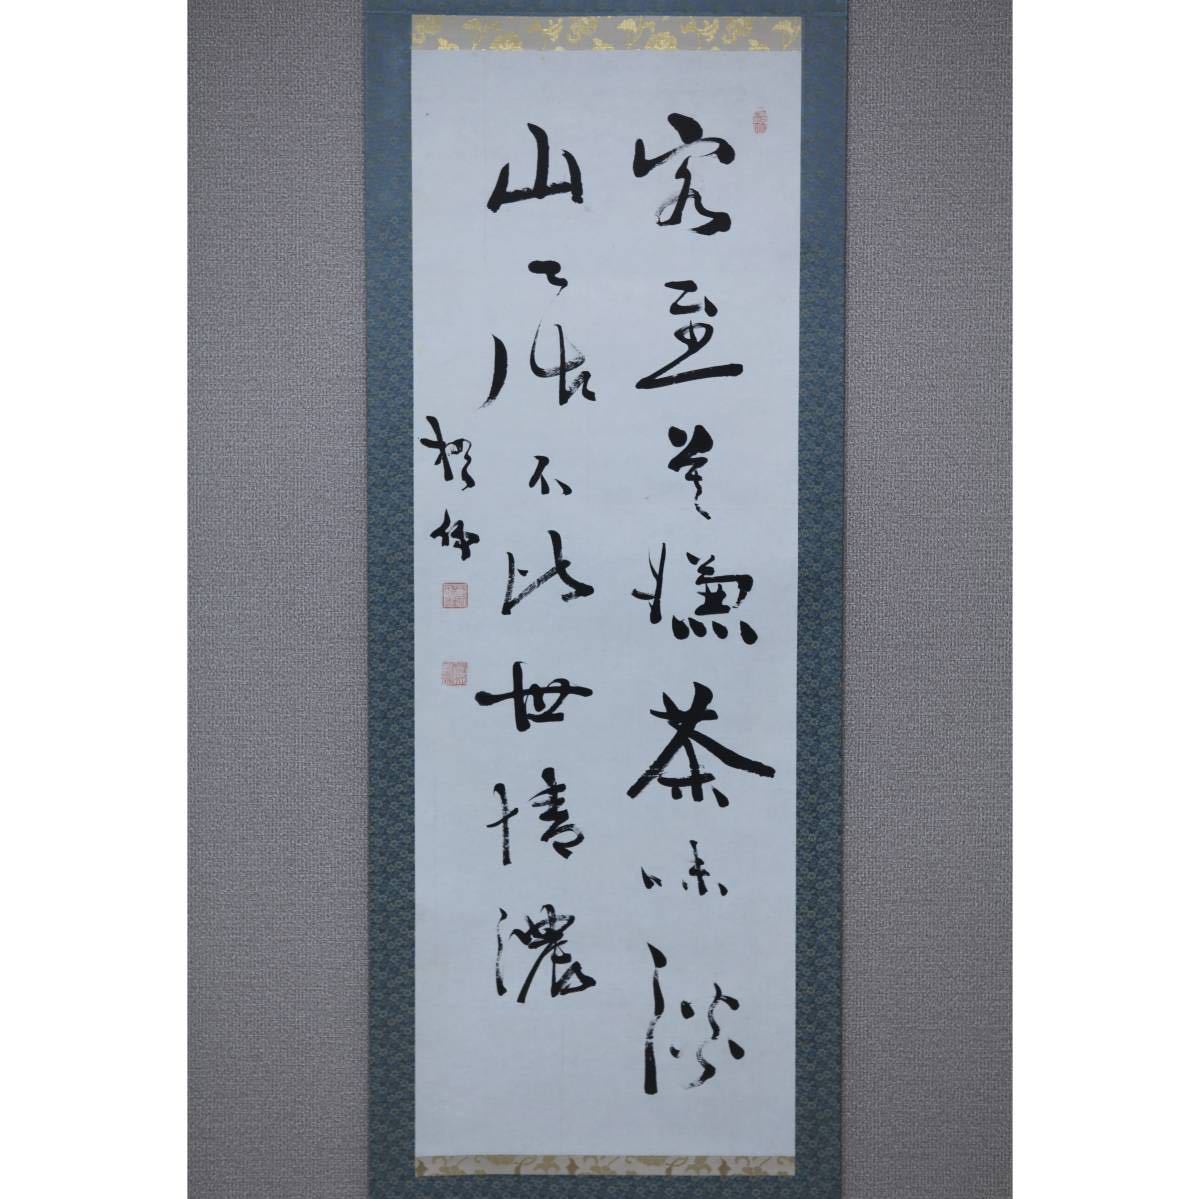 客至莫嫌茶味淡
山居不比世情濃